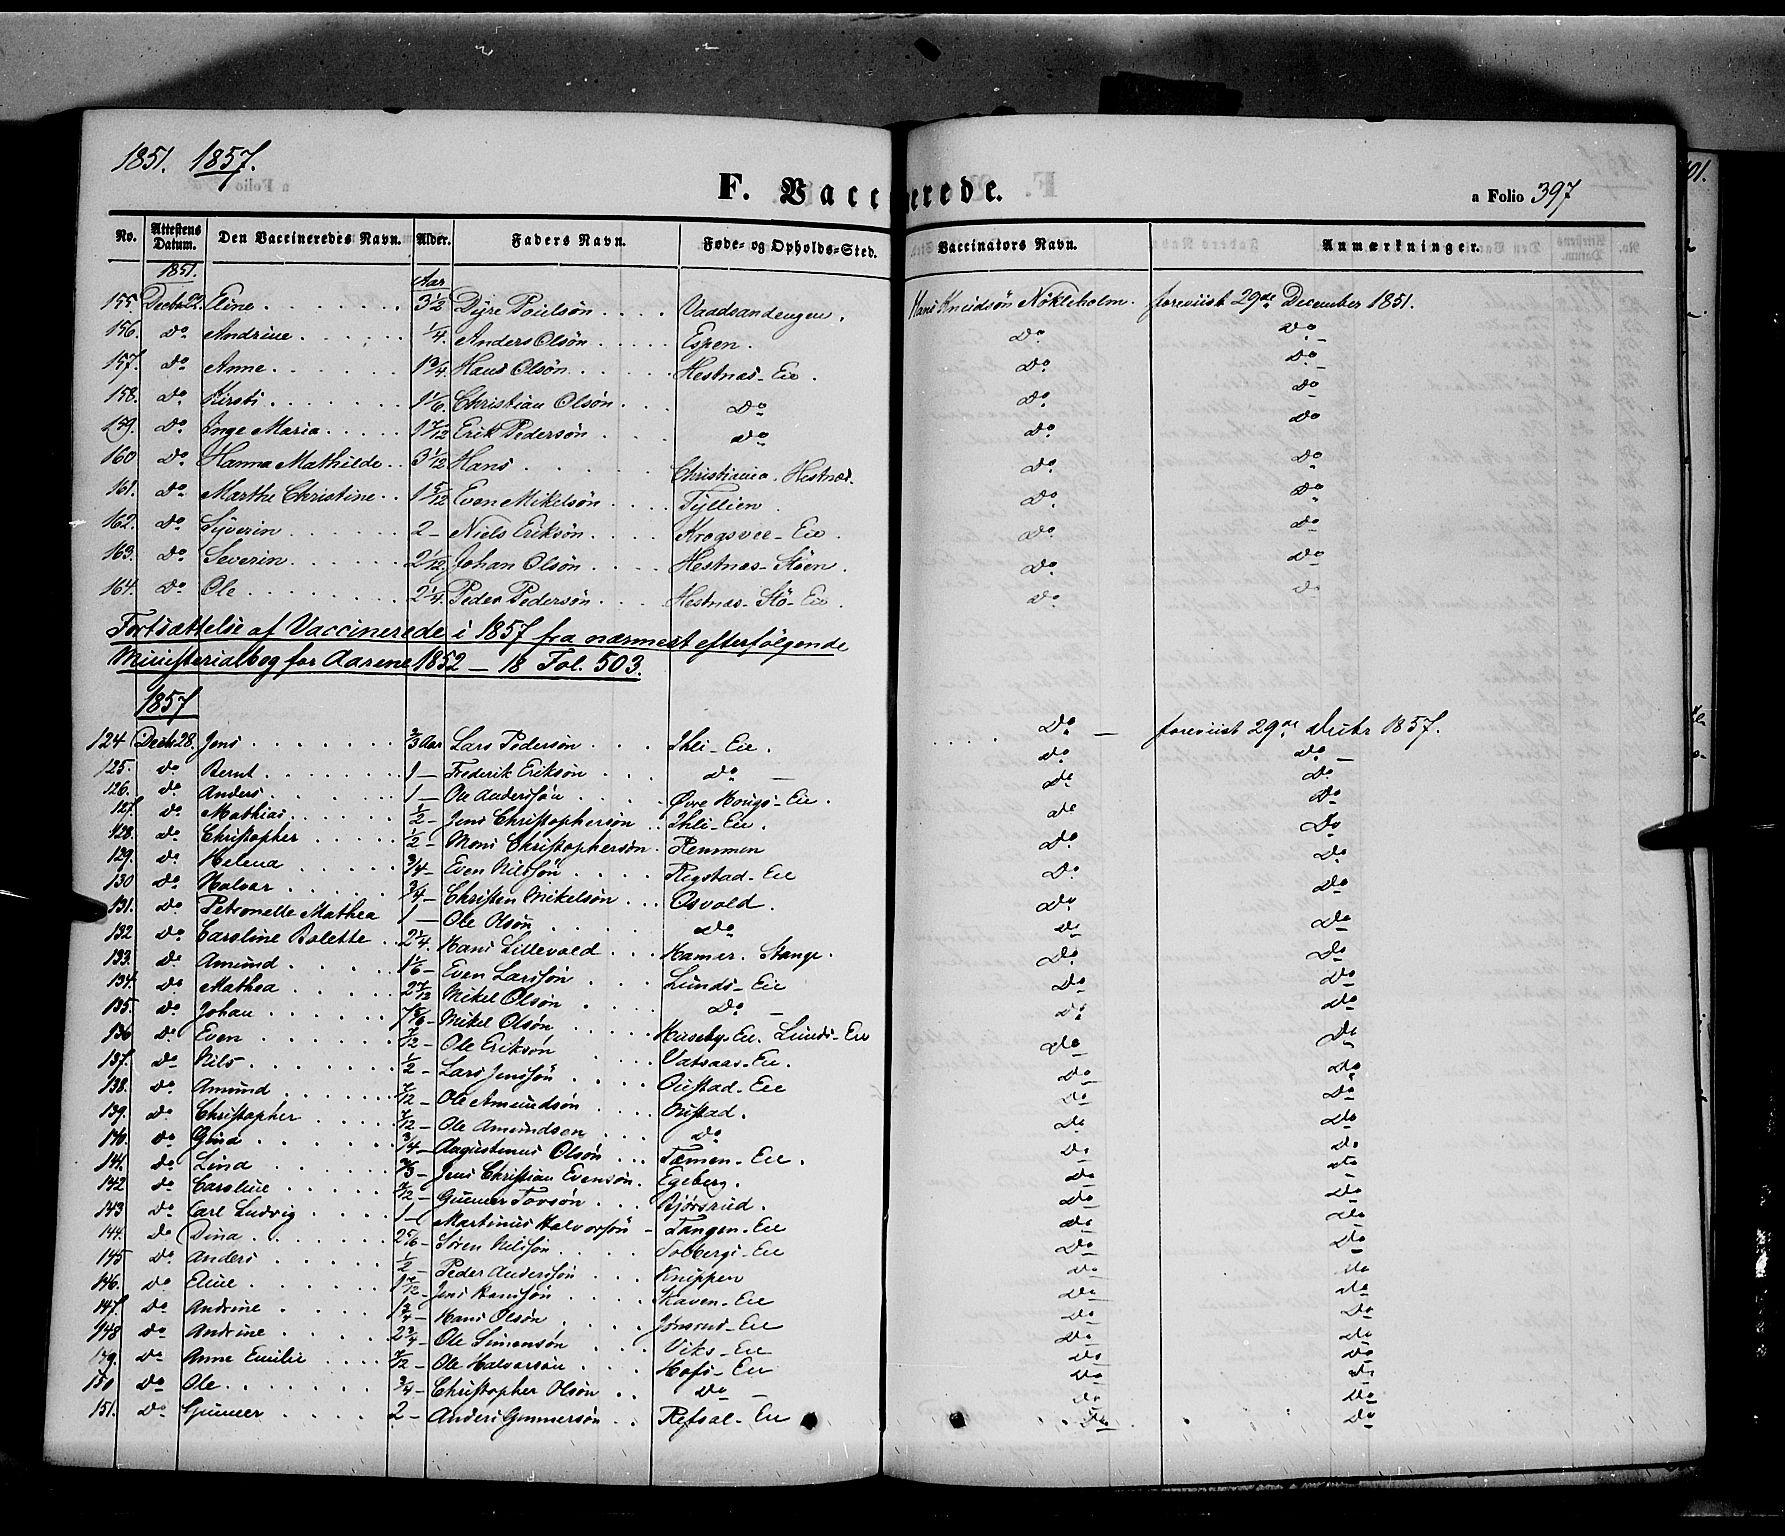 1851. 1857.
F. Vaccinerede.
a Folio 397
No. Attestens Datum. Den Vaccineredes Navn. Alder. Faders Navn. Føde- og Opholds-Sted. Vaccinators Navn. Anmærkninger.
1851. Aar
155. Decbr 22. Eline 3 1/2 Dyre Poulsön Vaadsandengen. Hans Knudsön Nökleholm. foreviist 29de December 1851.
156. Do Andrine 1/4. Anders Olsön Espen. Do Do
157. Do Anne 1 3/4. Hans Olsön Hestnæs-Eie. Do Do
158. Do Kirsti 1 1/6. Christian Olsön Do Do Do
159. Do Inge Maria 1 7/12 Erik Pedersön Do Do Do
160 Do Hanna Mathilde 3 1/12 Hans Christiania. Hestnæs. Do Do
161. Do Marthe Christine 1 5/12 Even Mikelsön Tyllien. Do Do
162. Do Syverin 2 - Niels Eriksön Krogsvee-Eie. Do Do
163. Do Severin 2 1/12. Johan Olsön Hestnæs-Stöen. Do Do
164. Do Ole 2 1/4. Peder Pedersön Hestnæs-Stö-Eie. Do Do
Fortsættelse af Vaccinerede i 1857 fra nærmest efterfölgende
Ministerialbog for Aarene 1852 - 18 Fol. 503.
1857
124 Decbr 28. Jens 2/3 Aar Lars Pedersön Ihli-Eie. Do foreviist 29de Decbr 1857.
125. do Bernt 1 - Frederik Eriksön Do Do Do
126. do Anders 1 - Ole Anderssön Øvre Hougs-Eie. do Do
127. do Mathias 1/2 - Jens Christophersön Ihli-Eie. do Do
128. do Christopher 1/2 - Mons Christophersön Hemmen Do Do
129. do Helena 3/4 - Even Nilssön Rigstad-Eie Do Do
130 do Halvar 3/4 - Christen Mikelsön Osvold. Do Do
131. do Petronelle Mathea 1 - Ole Olsön do Do Do
132 do Caroline Bolette 2 1/4. Hans Lillevold Hamer. Stange. Do Do
133. do Amund 1 1/6 - Even Larssön Lunds-Eie Do Do
134. do Mathea 2 7/12 Mikel Olsön Do Do Do
135. do Johan Mikel Olsön Huseby-Eie. Lunds-Eie Do Do
136 do Even 7/12 - Ole Eriksön Vatsaas-Eie. Do Do
137. do Nils 1/2 - Lars Jenssön Oustad-Eie Do Do
138. do Amund 7/12 - Ole Amundsön Oustad. Do Do
139. do Christopher 7/12 - Ole Amundsen Do Do Do
140. do Gina 3/4 - Augustenus Olsön Tæmen-Eie. Do Do
141. do Lina 2/3 - Jens Christian Evensön. Egeberg. Do Do
142 do Caroline 7/12 - Gunner Torsön Bjørsrud. Do Do
143 do Carl Ludvig 1 - Martinus Halvorsön Tangen-Eie Do Do
144. do Dina 2 5/6 - Sören Nilssön Tobergs-Eie Do Do
145 do Anders 1/2 - Peder Anderssön Knippen Do Do
146. do Eline Jens Hanssön Skaven-Eie Do Do
147. do Andrine Hans Olsön Jönsrud-Eie Do Do
148 do Andrine 2 3/4 - Ole Simensön Viks-Eie Do Do
149. do Anne Emilie 7/12 - Ole Halvorsön Hofs-Eie Do Do
150 do Ole 3/4 - Christopher Olsön Do Do Do
151. do Gunner 2 - Anders Gunnersön Refsal-Eie Do Do